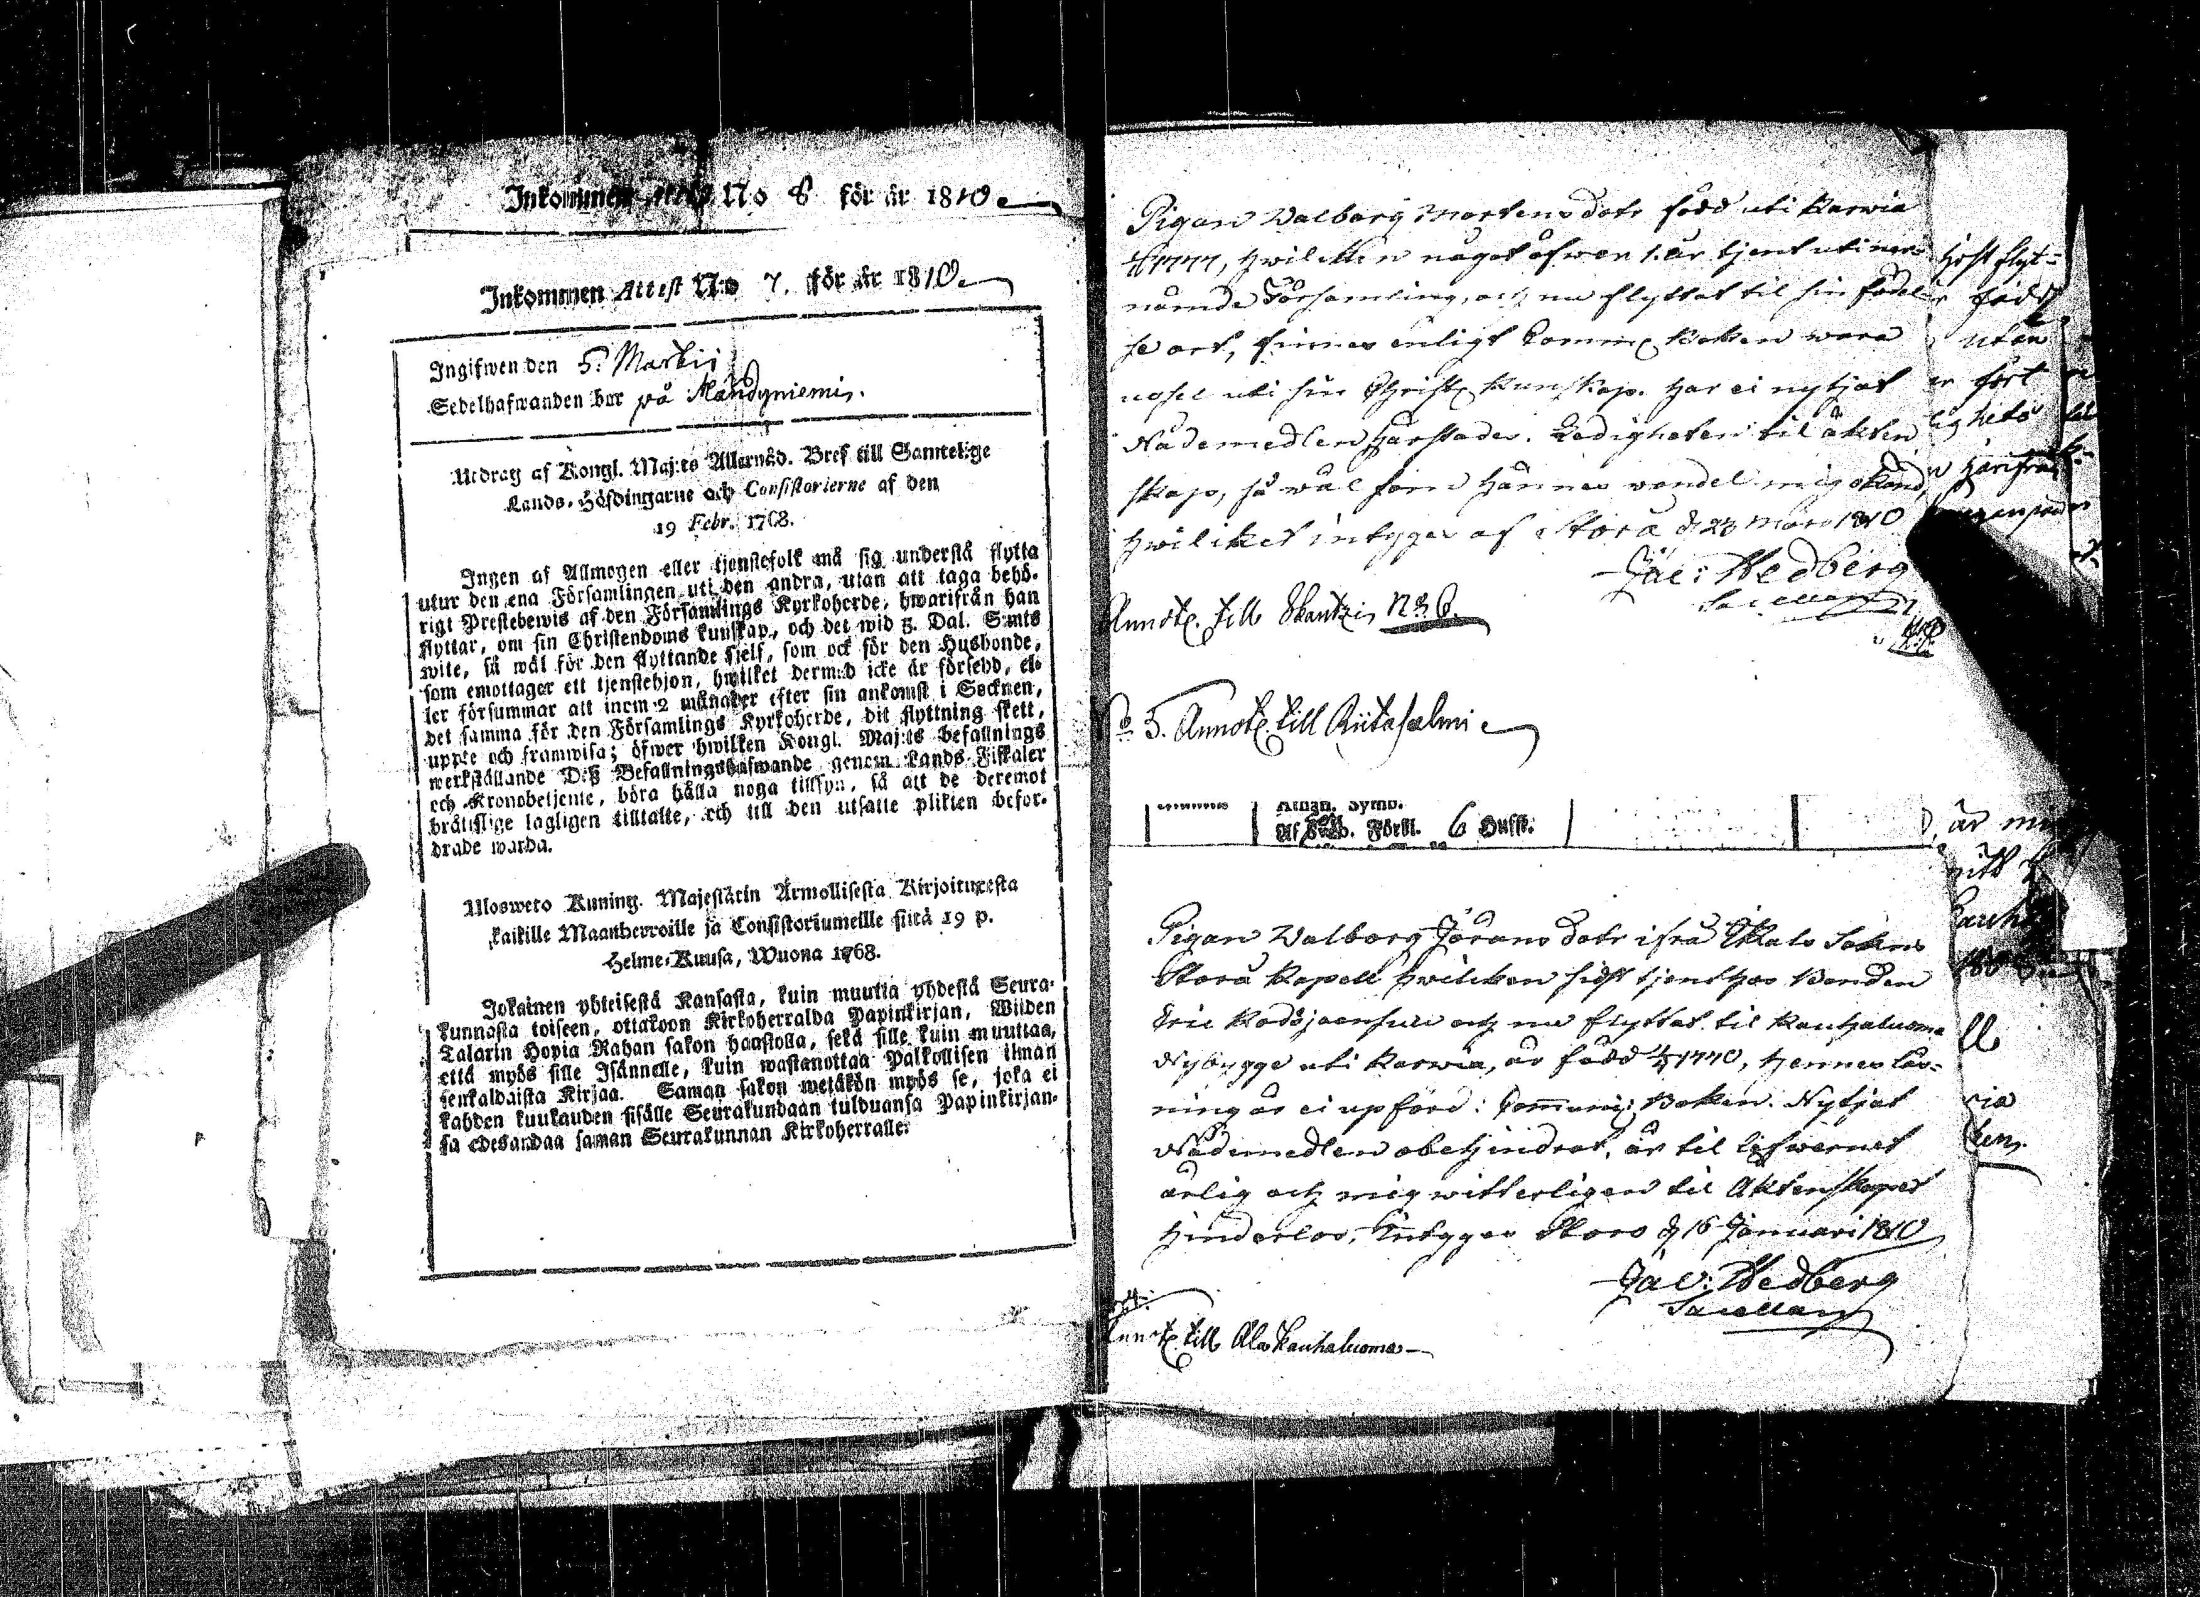 Inkommen No 8 för år 1810
Inkommen Attest N:o 7. för år 1810
Ingifwen den 5. Martii
Sedelhafwanden bor på
Utdrag af Kongl. Maj:ts Allernåd. Bref till Samtelige
Lands-Höfdingarne och Consistorierne af den
19 Febr. 1768.
Ingen af Allmogen eller tjenstefolk må sig understå flytta
utur den ena Församlingen uti den andra, utan att taga behö-
rigt Prestebewis af den Församlings Kyrkoherde, hwarifrån han
flyttar, om sin Christendoms kunskap, och det wid 3. Dal. S:mts
wite, så wäl för den flyttande sjelf, som ock för den Husbonde,
som emottager ett tjenstehjon, hwilket dermed icke är försedd, el-
ler försummar att inom 2 månader efter sin ankomst i Socknen,
det samma för den Församlings Kyrkoherde, dit flyttning skett,
uppte och framwisa; öfwer hwilken Kongl. Maj:ts befallnings
werkställande Deß Befallningshafwande genom Lands-Fiskaler
och Kronobetjente, böra hålla noga tillsyn, så att de deremot
bråtslige lagligen tilltalte, och till den utsatte plikten befor-
drade warda.
Ulosweto Kuning. Majestätin Armollisesta Kirjoituxesta
kaikille Maanherroille ja Consistoriumeille siitä 19 p.
Helme-Kuusa, Wuona 1768.
Jokainen yhteisestä Kansasta, kuin muutta yhdestä Seura-
kunnasta toiseen, ottakoon Kirkoherralda Papinkirjan, Wiiden
Talarin Hopia Rahan sakon haastolla, sekä sille kuin muuttaa,
että myös sille Isännelle, kuin wastanottaa Palkollisen ilman
senkaldaista Kirjaa. Saman sakon wetäkön myös se, joka ei
kahden kuukauden sisälle Seurakundaan tulduansa Papinkirjan-
sa edesandaa saman Seurakunnan Kirkoherralle.
Pigan Valborg Mortens dotr född uti Karwia
1777, hwilken något öfwer 1. år tjent uti
nämde Församling, och nu flyttat til sin födel-
se ort, finnes enligt Comm Boken wara
uti sin Christ kunskap. Har ei nytjat
Nådemedlen härstädes. Ledigheten til äkten
skap, så wäl som hännes vandel mig okänd,
hwilket intygas af Storå d 23 Mars 1810
Jac: Hedberg
Sacellan
Annot. till Skantzi N:o 6.
No 5. Annot. till Riitasalmi
Athan. Symb.
Förkl. 6 Hufst.
Pigan Valborg Jörans dotr ifrå Ikalis Sokns
Storå Kapell hwilken sidst tjent hos Bonden
Eric och nu flyttat til Kauhaluoma
Nybygge uti Karwia, är född 1770, hennes läs-
ning är ei upförd i Communi: Boken. Nytjat
Nådemedlen obehindrat, är til lefwernet
ärlig och mig witterligen til Äktenskapet
hinderlös, Intygas Storå d 16 Januari 1810
Jac: Hedberg
Sacellan
Annot. till Ala Kauhaluoma